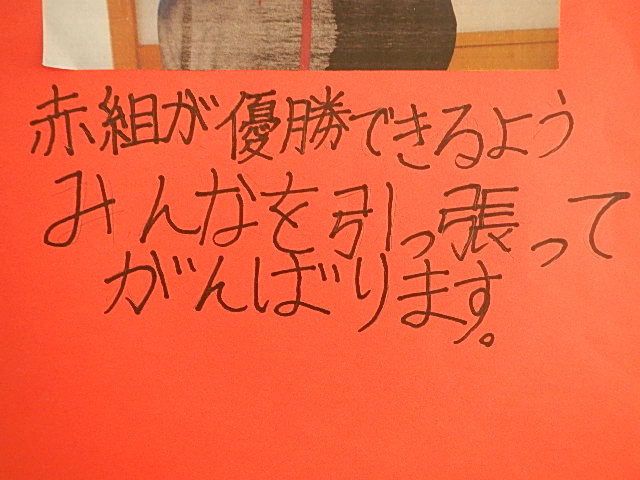 赤組が優勝できるよう
みんなを引っ張って
がんばります。